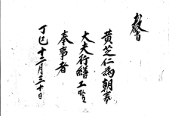 教
黄芝仁為朝奉
大夫行繕工監
奉事者
丁巳十二月三十日